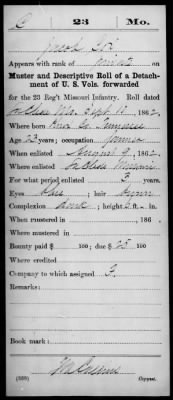 C 23 Mo.
Jacob
Appears with rank of private on
Muster and Descriptive Roll of a Detach-
ment of U. S. Vols. forwarded
for the 23 Reg't Missouri Infantry. Roll dated
St. Louis Mo. Sept 11, 1862.
Where born Knox Co. Tennessee
Age 23 years; occupation Farmer
When enlisted August 9, 1862.
Where enlisted Missouri
For what period enlisted 3 years.
Eyes Blue; hair
Complexion; height ft. in.
When mustered in, 186 .
Where mustered in
Bounty paid $ 100; due $ 25 100
Where credited
Company to which assigned
Remarks:
Book mark:
Copyist.